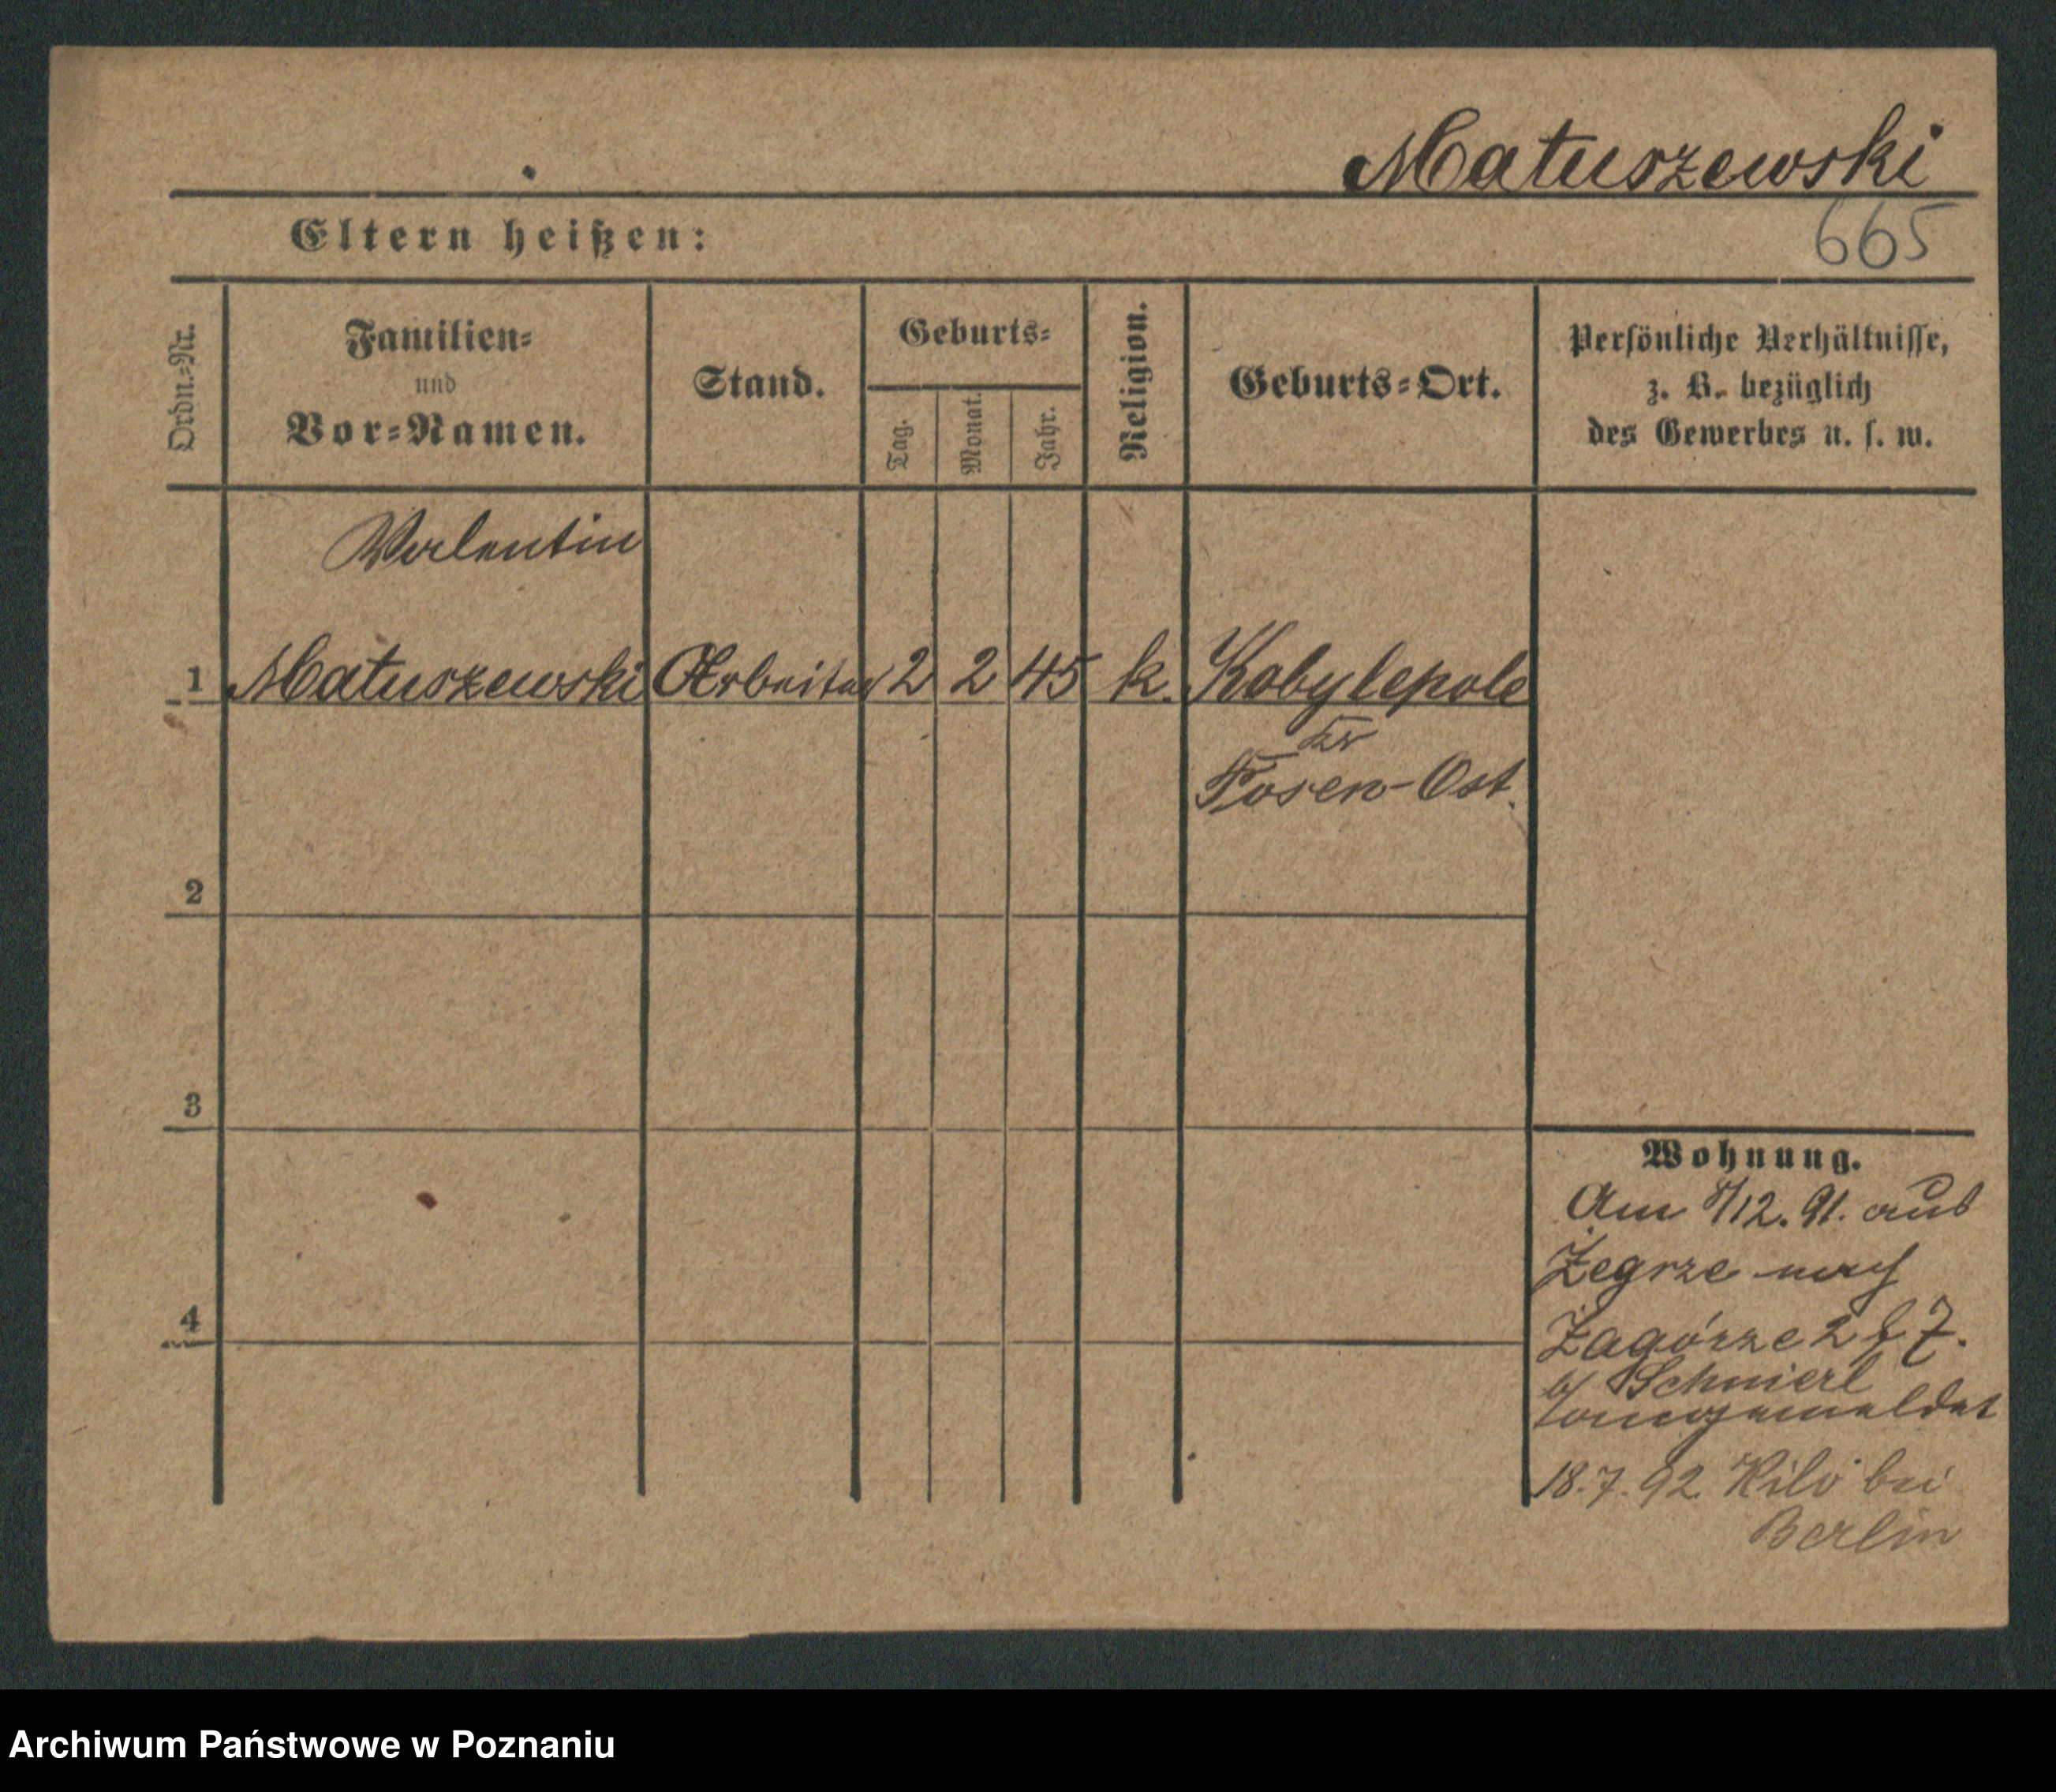 Matuszewski
665
Eltern heißen:
Ordn.-Nr.
Familien-
und
Vor-Namen.
Stand.
Geburts-
Tag.
Monat.
Jahr.
Religion.
Geburts-Ort.
Persönliche Verhältnisse,
z. B. bezüglich
des Gewerbes u. s. w.
Valentin
1 Matuszewski Arbeiter 2 2 45 k. Kobylepole
Kr
Posen-Ost.
2
3
4
Wohnung.
Am 8/12. 91. aus
Żegrze nach
Zagórze 2
b/ Schmierl
angemeldet
18.7.92 bei
Berlin
Archiwum Państwowe w Poznaniu